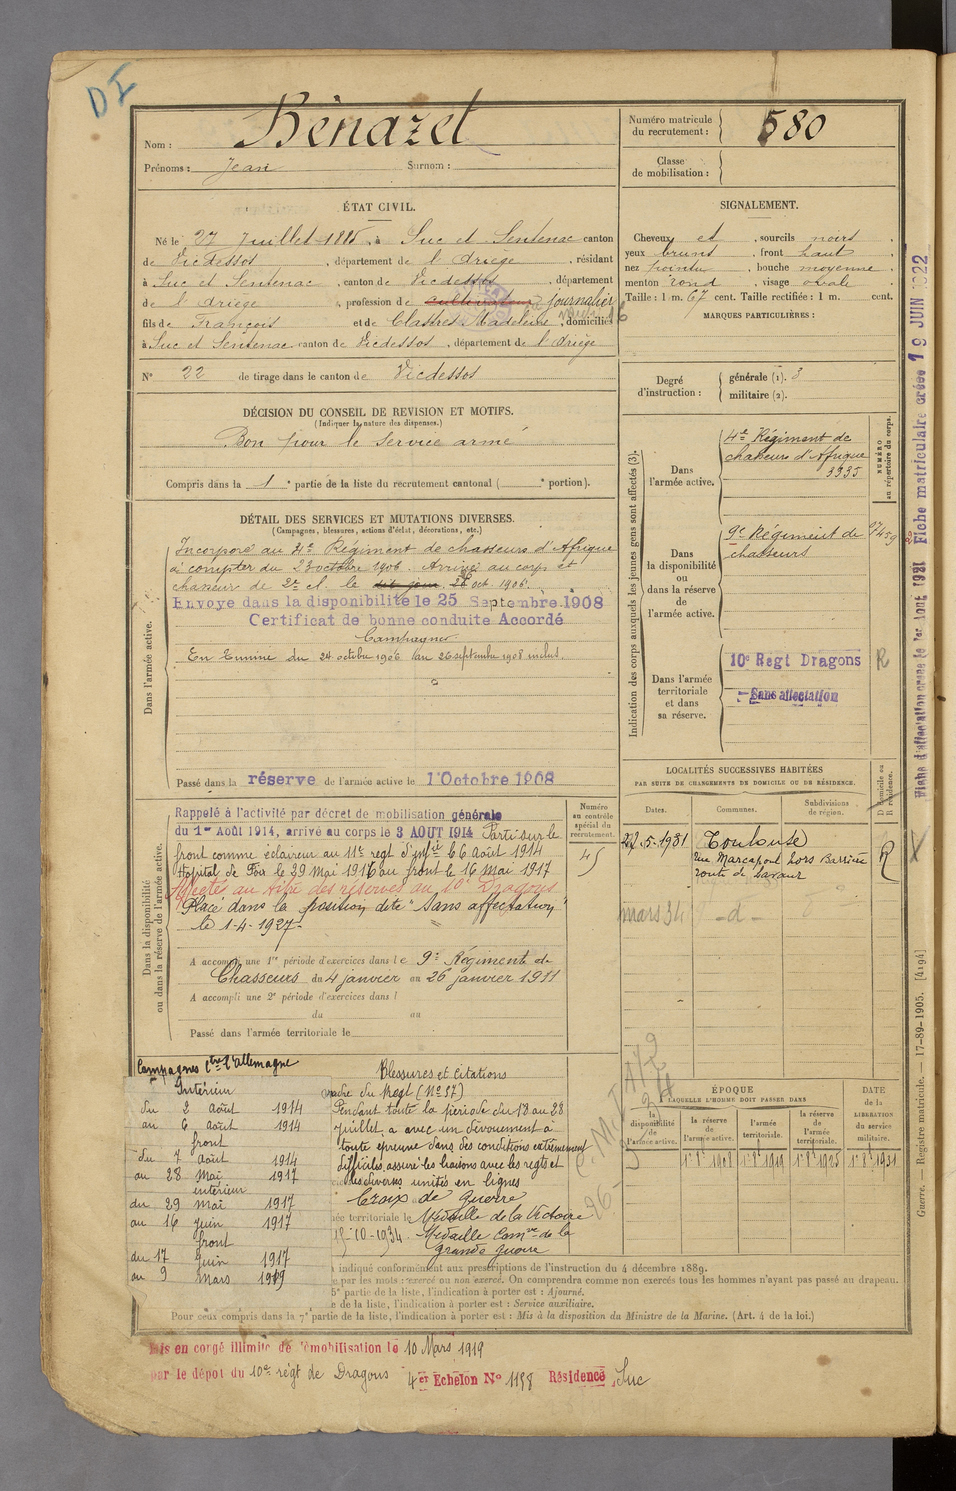 DI
Nom : Bénazet
Prénoms : Jean Surnom :
Numéro matricule du recrutement : 580
Classe de mobilisation :
ÉTAT CIVIL.
Né le 27 Juillet 1885, à Suc et Sentenac canton
de Vicdessos, département de l'Ariège, résidant
à Suc et Sentenac, canton de Vicdessos, département
de l'Ariège, profession de cultivateur journalier
fils de François et de Classtres Madeleine, domiciliés
à Suc et Sentenac canton de Vicdessos, département de l'Ariège
N° 22 de tirage dans le canton de Vicdessos
SIGNALEMENT.
Cheveux et, sourcils noirs
yeux bruns, front haut
nez pointu, bouche moyenne
menton rond, visage ovale
Taille : 1 m. 67 cent. Taille rectifiée : 1 m. cent.
MARQUES PARTICULIÈRES :
Degré d'instruction : générale (1). 3
militaire (2).
DÉCISION DU CONSEIL DE REVISION ET MOTIFS.
(Indiquer la nature des dispenses.)
Bon pour le service armé
Compris dans la 1e partie de la liste du recrutement cantonal ( e portion).
DÉTAIL DES SERVICES ET MUTATIONS DIVERSES.
(Campagnes, blessures, actions d'éclat, décorations, etc.)
Dans l'armée active.
Incorporé au 4e Régiment de chasseurs d'Afrique
à compter du 23 octobre 1906. Arrivé au corps et
chasseur de 2e cl. le dit jour 24 oct 1906.
Envoyé dans la disponibilité le 25 Septembre 1908
Certificat de bonne conduite Accordé
Campagnes
En Tunisie du 24 octobre 1906 au 26 septembre 1908 inclus.
Passé dans la réserve de l'armée active le 1 Octobre 1908
Indication des corps auxquels les jeunes gens sont affectés (3).
NUMÉRO au répertoire du corps.
Dans l'armée active.
4e Régiment de
chasseurs d'Afrique
3935
Dans la disponibilité ou dans la réserve de l'armée active.
9e Régiment de
chasseurs
Dans l'armée territoriale et dans sa réserve.
10e Regt Dragons R
Sans affectation
LOCALITÉS SUCCESSIVES HABITÉES
PAR SUITE DE CHANGEMENTS DE DOMICILE OU DE RÉSIDENCE.
Dates. Communes. Subdivisions de région. D Domicile ou R résidence.
22.5.1931 Toulouse R
rue Marcapoul hors Barrière
route de Lavaur
mars 34 -d-
Dans la disponibilité ou dans la réserve de l'armée active.
Numéro au contrôle spécial du recrutement.
45
Rappelé à l'activité par décret de mobilisation générale
du 1er Août 1914, arrivé au corps le 3 AOUT 1914 Parti sur le
front comme éclaireur au 11e regt d'infie le 6 Août 1914
Hôpital de Foix le 29 Mai 1917 au front le 16 Mai 1917
Affecté au titre des réserves au 10e Dragons
Placé dans la position dite "Sans affectation"
le 1-4-1927
A accompli une 1re période d'exercices dans le 9e Régiment de
Chasseurs du 4 janvier au 26 janvier 1911
A accompli une 2e période d'exercices dans l
du au
Passé dans l'armée territoriale le
Campagnes Ctre l'Allemagne
Intérieur
du 2 Août 1914
au 6 Août 1914
front
du 7 Août 1914
au 28 Mai 1917
intérieur
du 29 Mai 1917
au 16 Juin 1917
front
du 17 Juin 1917
au 9 Mars 1919
Blessures et Citations
ordre du Regt (N° 57)
Pendant toute la période du 18 au 28
juillet, a avec un dévouement à
toute épreuve dans des conditions extrêmement
difficiles assuré les liaisons avec les regts et
les diverses unités en lignes
Croix de Guerre
ée territoriale le Médaille de la Victoire
15-10-1934. Médaille Comve de la
Grande guerre
ÉPOQUE
À LAQUELLE L'HOMME DOIT PASSER DANS
DATE de la LIBÉRATION du service militaire.
la disponibilité de l'armée active. la réserve de l'armée active. l'armée territoriale. la réserve de l'armée territoriale.
1er 8bre 1908 1er 8bre 1919 1er 8bre 1925 1er 8bre 1931
indiqué conformément aux prescriptions de l'instruction du 4 décembre 1889.
par les mots : exercé ou non exercé. On comprendra comme non exercés tous les hommes n'ayant pas passé au drapeau.
5e partie de la liste, l'indication à porter est : Ajourné.
e de la liste, l'indication à porter est : Service auxiliaire.
Pour ceux compris dans la 7e partie de la liste, l'indication à porter est : Mis à la disposition du Ministre de la Marine. (Art. 4 de la loi.)
Mis en congé illimité de démobilisation le 10 Mars 1919
par le dépôt du 10e régt de Dragons 4er Echelon N° 1198 Résidence Suc
Fiche d'affectation créée le 1er Août 1921 Fiche matriculaire créée 19 JUIN 1922
Guerre. — Registre matricule. — 17-89-1905. [4194]